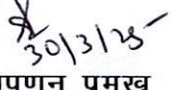 30/3/25
विपणन प्रमुख